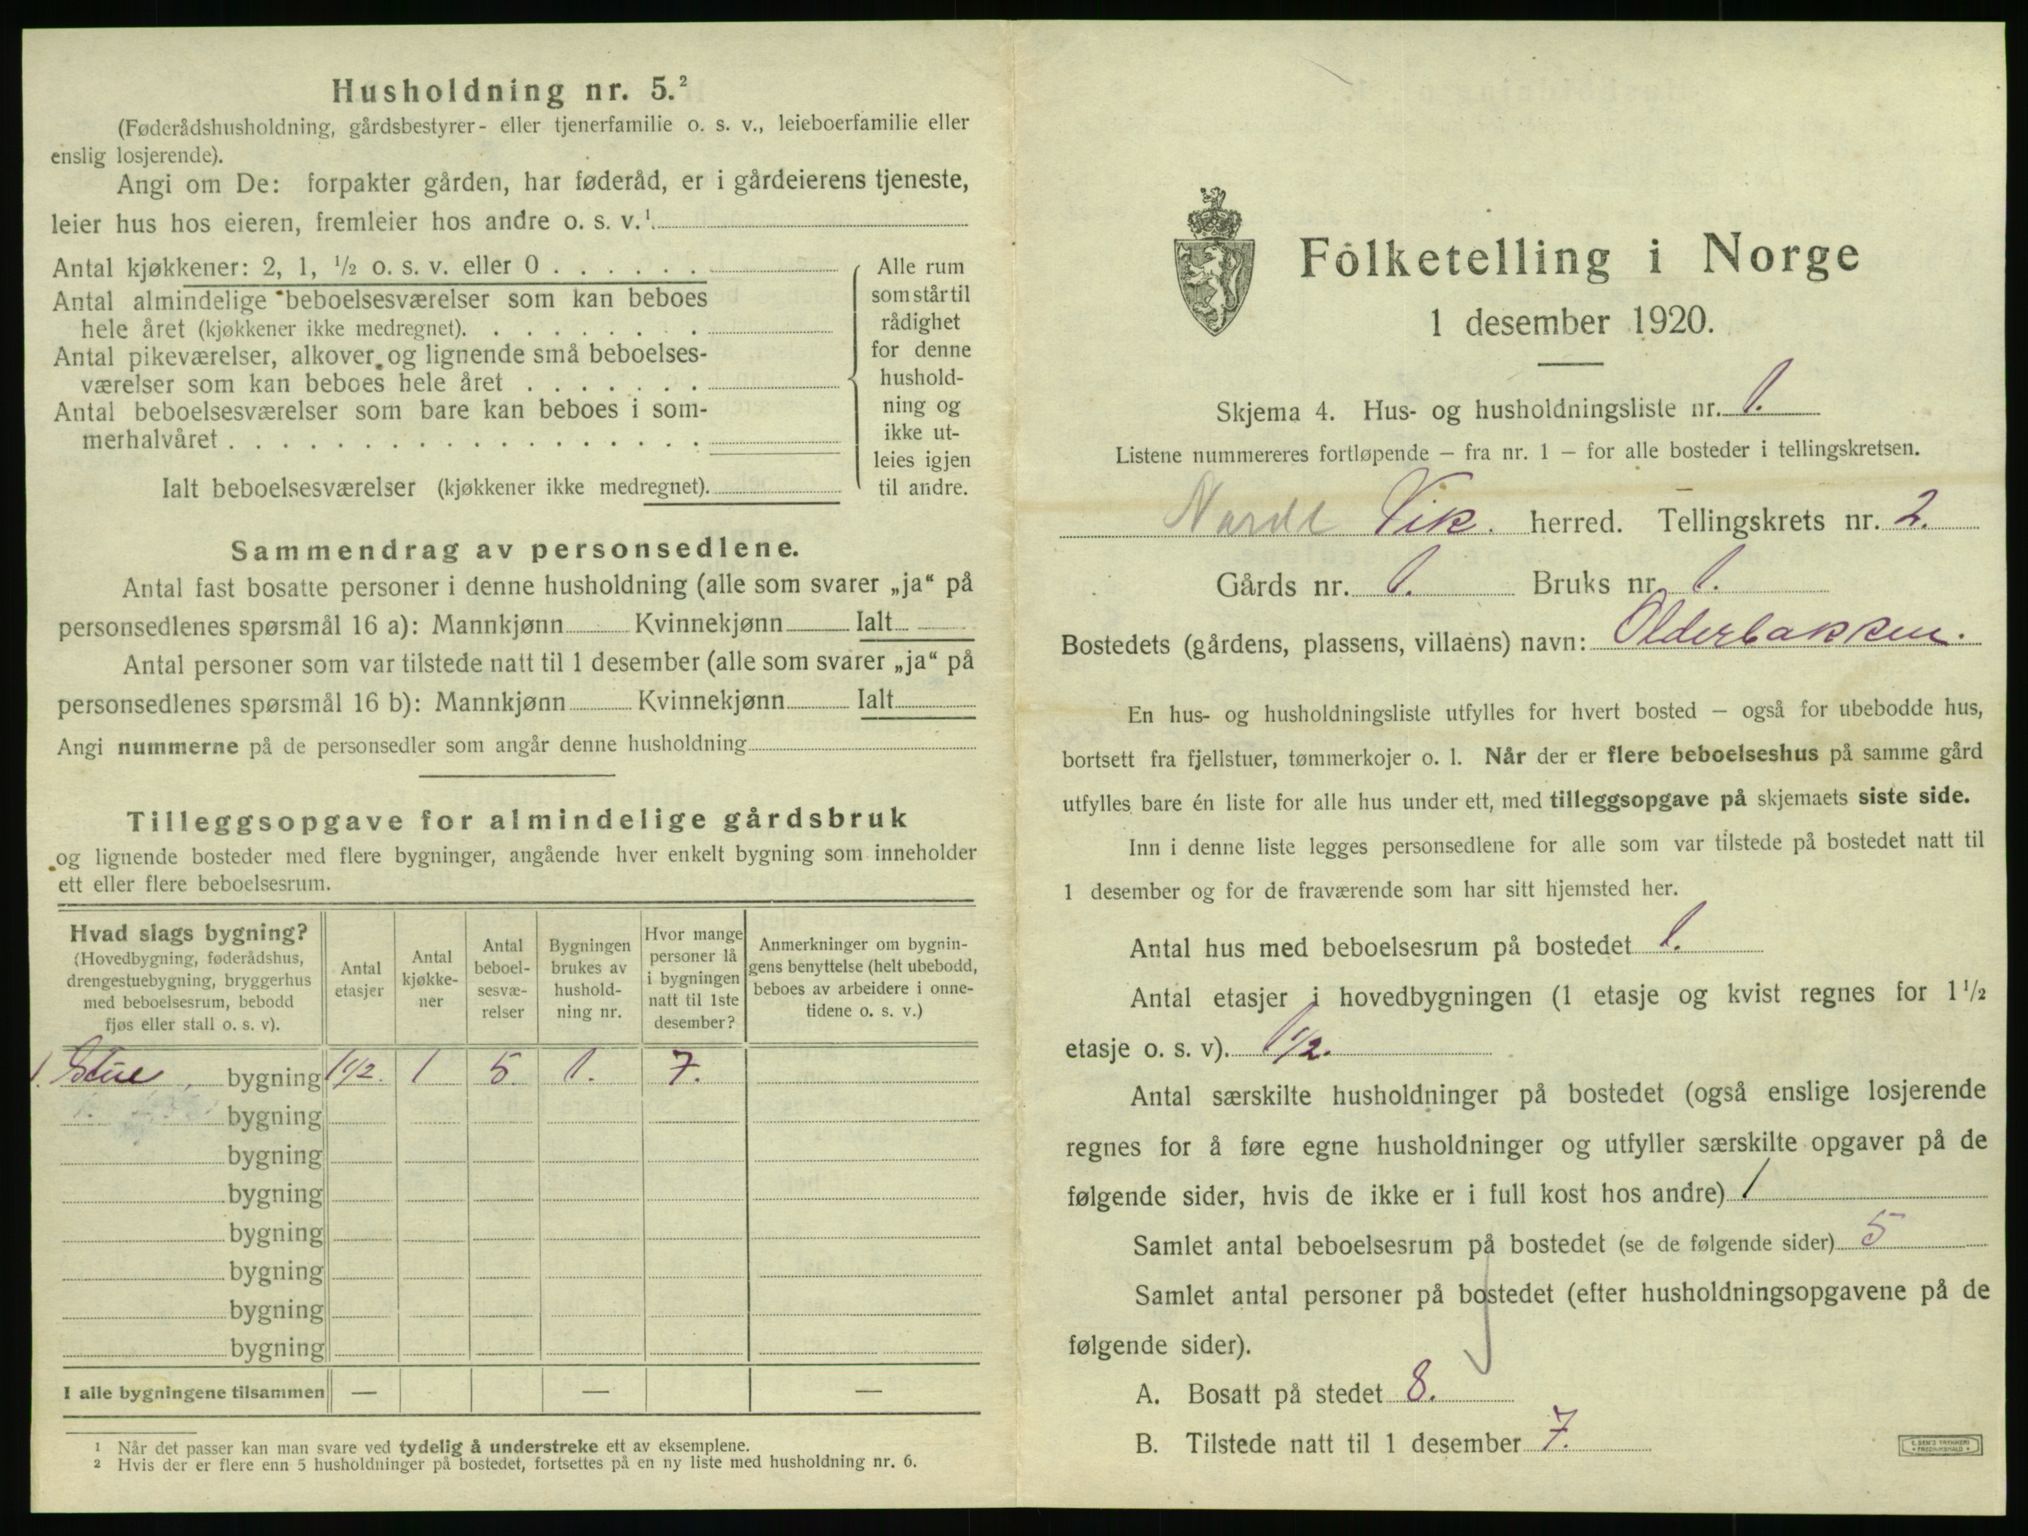 Husholdning nr. 5.²
(Føderådshusholdning, gårdsbestyrer- eller tjenerfamilie o. s. v., leieboerfamilie eller
enslig losjerende).
Angi om De: forpakter gården, har føderåd, er i gårdeierens tjeneste,
leier hus hos eieren, fremleier hos andre o. s. v.¹
Antal kjøkkener: 2, 1, ½ o. s. v. eller 0 . . . . . .
Antal almindelige beboelsesværelser som kan beboes
hele året (kjøkkener ikke medregnet). . . . . . . .
Antal pikeværelser, alkover og lignende små beboelses-
værelser som kan beboes hele året . . . . . . .
Antal beboelsesværelser som bare kan beboes i som-
merhalvåret . . . . . . . . . . . . . . . . . .
Ialt beboelsesværelser (kjøkkener ikke medregnet).
Alle rum
som står til
rådighet
for denne
hushold-
ning og
ikke ut-
leies igjen
til andre.
Sammendrag av personsedlene.
Antal fast bosatte personer i denne husholdning (alle som svarer „ja“ på
personsedlenes spørsmål 16 a): Mannkjønn Kvinnekjønn Ialt
Antal personer som var tilstede natt til 1 desember (alle som svarer „ja“ på
personsedlenes spørsmål 16 b): Mannkjønn Kvinnekjønn Ialt
Angi nummerne på de personsedler som angår denne husholdning
Tilleggsopgave for almindelige gårdsbruk
og lignende bosteder med flere bygninger, angående hver enkelt bygning som inneholder
ett eller flere beboelsesrum.
Hvad slags bygning?
(Hovedbygning, føderådshus,
drengestuebygning, bryggerhus
med beboelsesrum, bebodd
fjøs eller stall o. s. v).
Antal
etasjer
Antal
kjøkke-
ner
Antal
beboel-
sesvæ-
relser
Bygningen
brukes av
hushold-
ning nr.
Hvor mange
personer lå
i bygningen
natt til 1ste
desember?
Anmerkninger om bygnin-
gens benyttelse (helt ubebodd,
beboes av arbeidere i onne-
tidene o. s. v.)
1. Stue, bygning 1½. 1 5. 1. 7.
bygning
bygning
bygning
bygning
bygning
bygning
bygning
I alle bygningene tilsammen — — —
¹ Når det passer kan man svare ved tydelig å understreke ett av eksemplene.
² Hvis der er flere enn 5 husholdninger på bostedet, fortsettes på en ny liste med husholdning nr. 6.
Folketelling i Norge
1 desember 1920.
Skjema 4. Hus- og husholdningsliste nr. 1.
Listene nummereres fortløpende – fra nr. 1 – for alle bosteder i tellingskretsen.
Nordl Vik. herred. Tellingskrets nr. 2.
Gårds nr. 1. Bruks nr. 1.
Bostedets (gårdens, plassens, villaens) navn: Olderbakken.
En hus- og husholdningsliste utfylles for hvert bosted – også for ubebodde hus,
bortsett fra fjellstuer, tømmerkojer o. l. Når der er flere beboelseshus på samme gård
utfylles bare én liste for alle hus under ett, med tilleggsopgave på skjemaets siste side.
Inn i denne liste legges personsedlene for alle som var tilstede på bostedet natt til
1 desember og for de fraværende som har sitt hjemsted her.
Antal hus med beboelsesrum på bostedet 1.
Antal etasjer i hovedbygningen (1 etasje og kvist regnes for 1½
etasje o. s. v). 1½.
Antal særskilte husholdninger på bostedet (også enslige losjerende
regnes for å føre egne husholdninger og utfyller særskilte opgaver på de
følgende sider, hvis de ikke er i full kost hos andre) 1
Samlet antal beboelsesrum på bostedet (se de følgende sider) 5
Samlet antal personer på bostedet (efter husholdningsopgavene på de
følgende sider).
A. Bosatt på stedet 8.
B. Tilstede natt til 1 desember 7.